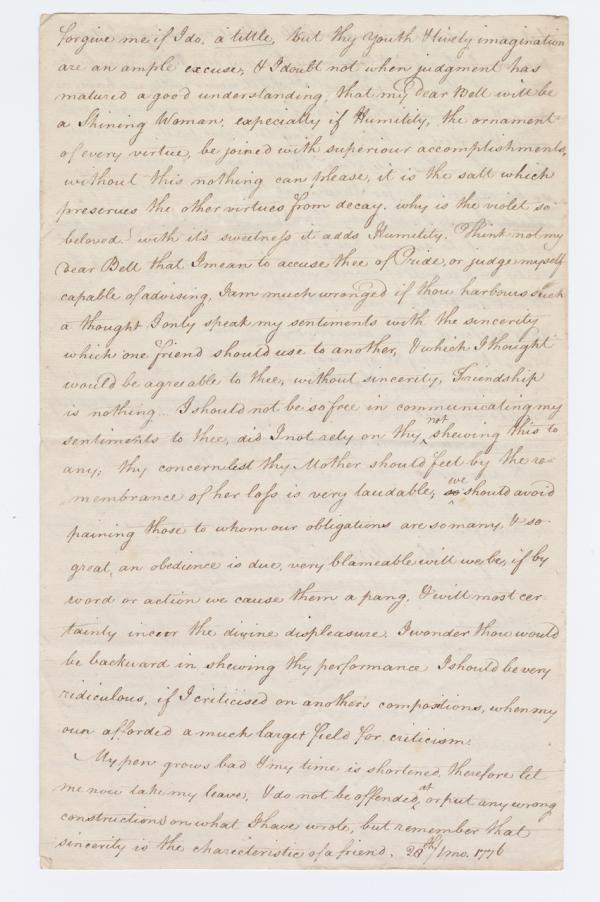 forgive me if I do, a little, but thy Youth & lively imagination
are an ample excuse, & I doubt not when judgment has
matured a good understanding, that my dear Bell will be
a Shining Woman, especially if Humility, the ornament
of every virtue, be joined with superiour accomplishments,
without this nothing can please, it is the salt which
preserves the other virtues from decay. why is the violet so
beloved? with it's sweetness it adds Humility. Think not my
dear Bell that I mean to accuse thee of Pride, or judge myself
capable of advising, I am much wronged if thou harbours such
a thought I only speak my sentiments with the sincerity
which one friend should use to another, & which I thought
would be agreeable to thee, without sincerity, Friendship
is nothing... I should not be so free in communicating my
sentiments to thee, did I not rely on thy not shewing this to
any; thy concern lest thy Mother should feel by the re-
membrance of her loss is very laudable, we should avoid
paining those to whom our obligations are so many, & so
great, an obedience is due, very blameable will we be, if by
word or action we cause them a pang, & will most cer-
tainly incur the divine displeasure. I wonder thou would
be backward in shewing thy performance I should be very
ridiculous, if I criticised on another's compositions, when my
own afforded a much larger field for criticism.
My pen grows bad & my time is shortened, therefore let
me now take my leave, & do not be offended at, or put any wrong
constructions on what I have wrote, but remember that
sincerity is the charecteristic of a friend. 28th/1mo. 1776